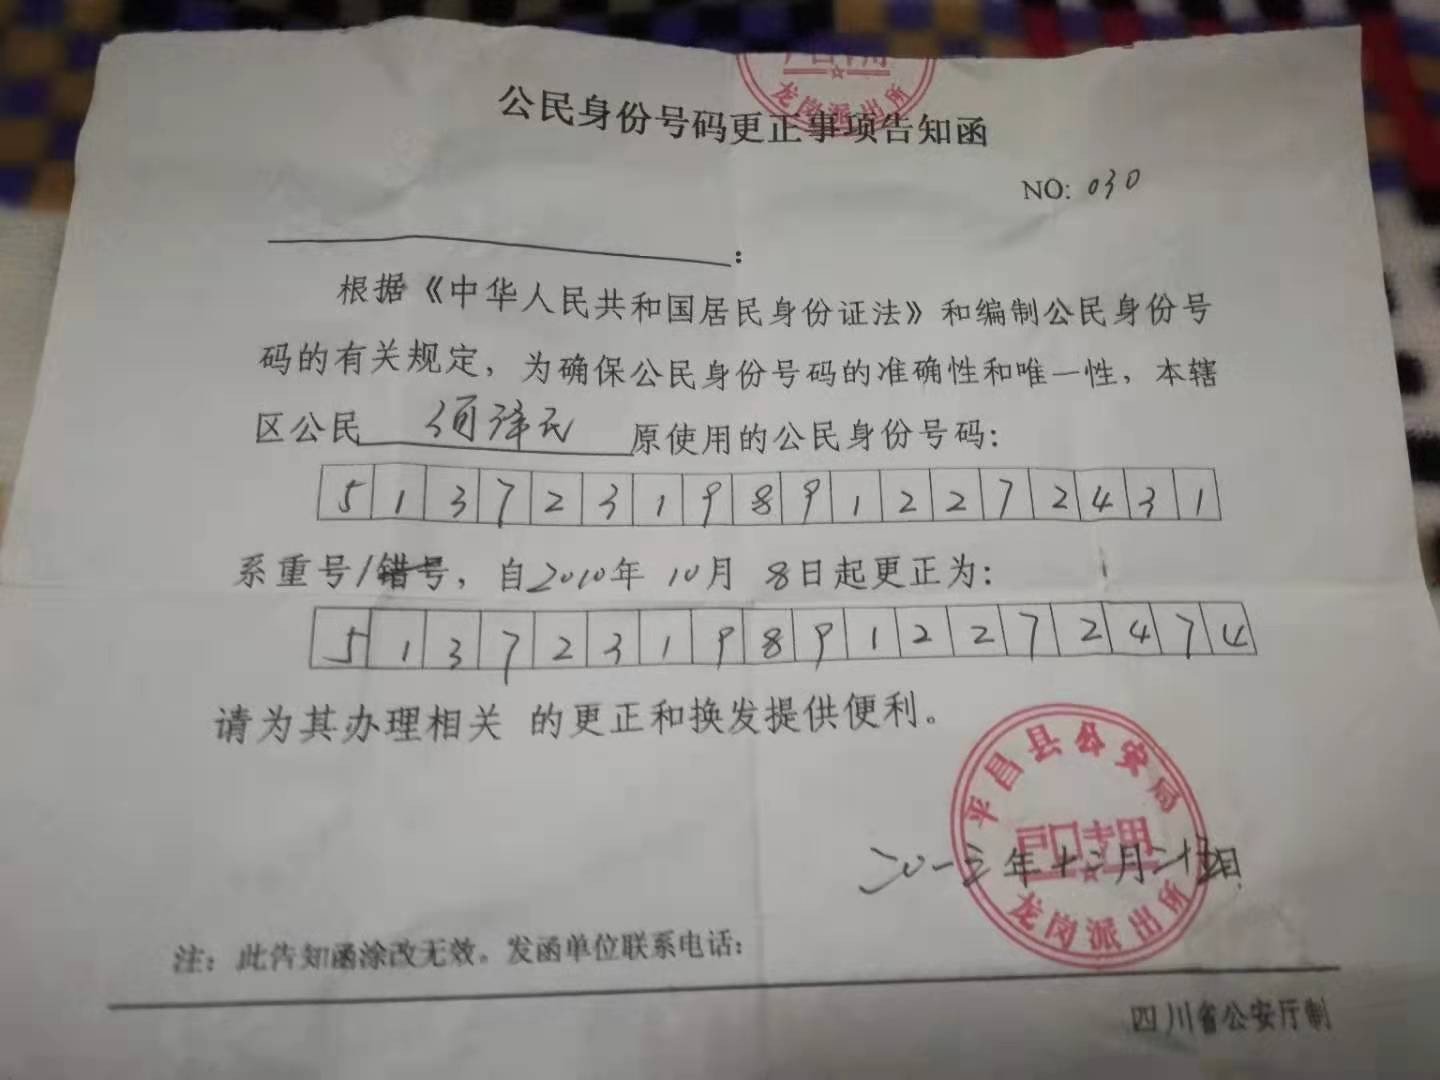 户口专用
龙岗派出所
公民身份号码更正事项告知函
NO: 030
:
根据《中华人民共和国居民身份证法》和编制公民身份号
码的有关规定，为确保公民身份号码的准确性和唯一性，本辖
区公民 泽民 原使用的公民身份号码：
513723198912272431
系重号/错号，自2010年 10月 8日起更正为：
513723198912272474
请为其办理相关 的更正和换发提供便利。
平昌县公安局
户口专用
二〇一三年十二月二十五日
龙岗派出所
注：此告知函涂改无效。发函单位联系电话：
四川省公安厅制